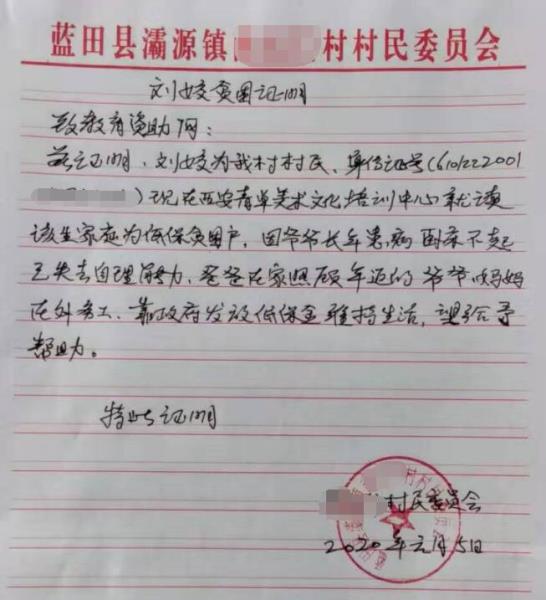 蓝田县灞源镇 村村民委员会
刘姣贫困证明
致教育资助网：
兹证明，刘姣为我村村民，身份证号（6101222001
）现在西安青卓美术文化培训中心就读
该生家庭为低保贫困户，因爷爷长年患病卧床不起
已失去自理能力，爸爸在家照顾年迈的爷爷，妈妈
在外务工，靠政府发放低保金维持生活，望给予
帮助。
特此证明
村民委员会
2020年元月5日